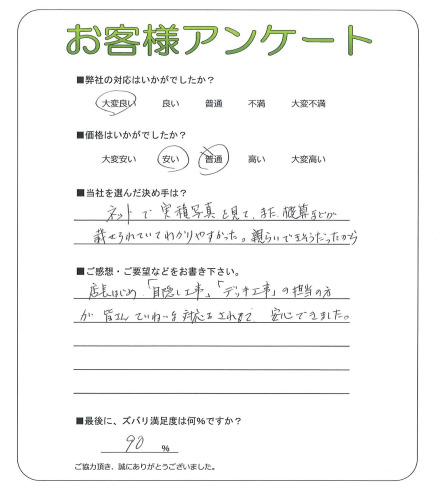 お客様アンケート
■弊社の対応はいかがでしたか?
大変良い 良い 普通 不満 大変不満
■価格はいかがでしたか?
大変安い 安い 普通 高い 大変高い
■当社を選んだ決め手は?
ネットで実積写真を見て、また、概算などが
載せられていてわかりやすかった。親らいできそうだったから
■ご感想・ご要望などをお書き下さい。
店長はじめ、「目隠し工事」、「デッキ工事」の担当の方
が皆さんていねいな対応をされてて、安心できました。
■最後に、ズバリ満足度は何%ですか?
90 %
ご協力頂き、誠にありがとうございました。